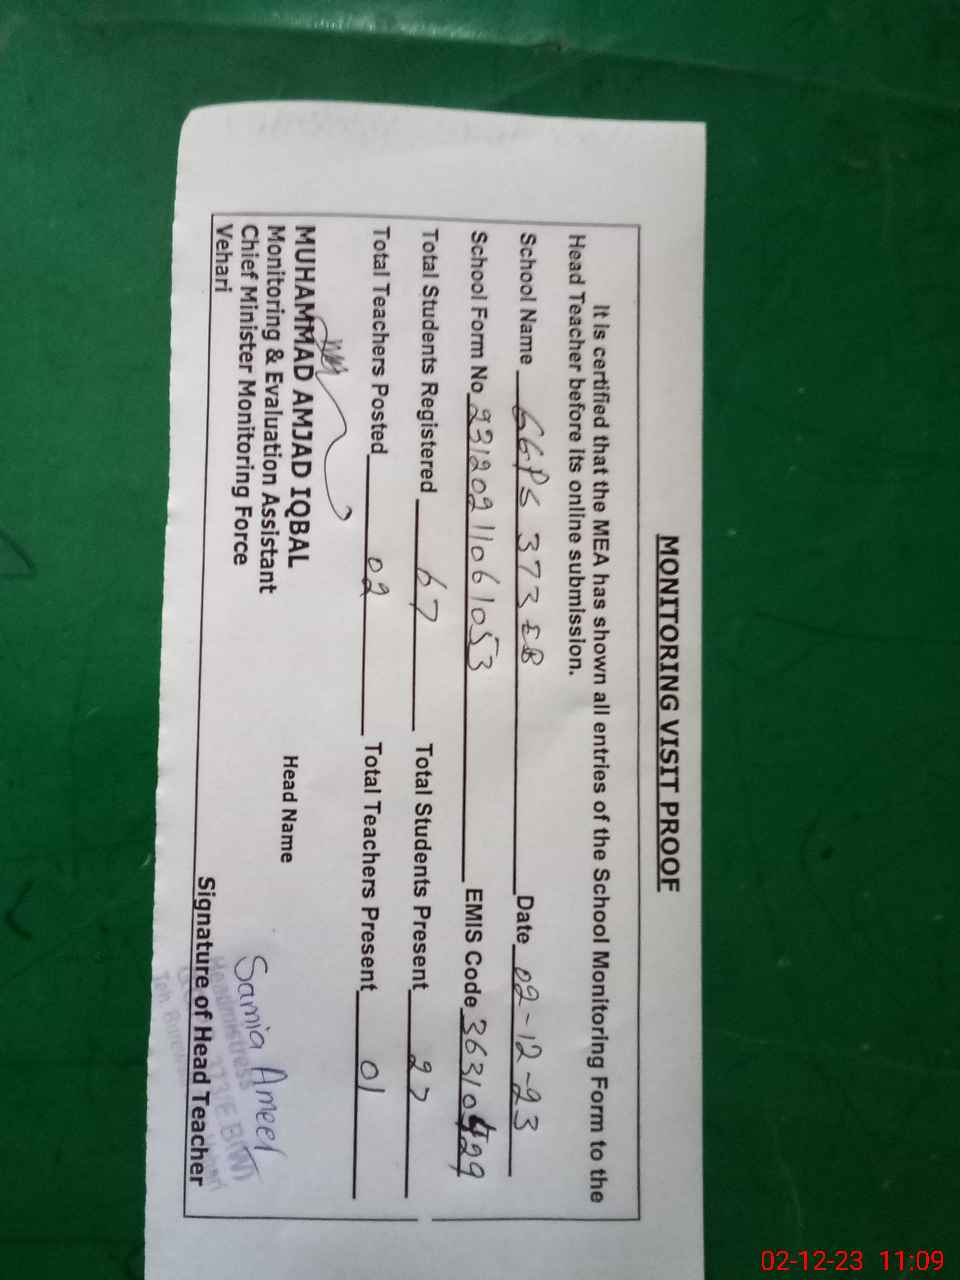 MONITORING VISIT PROOF
It is certified that the MEA has shown all entries of the School Monitoring Form to the
Head Teacher before its online submission.
School Name GGPS 373 EB Date 02-12-23
School Form No 23120211061053 EMIS Code 36310429
Total Students Registered 67 Total Students Present 27
Total Teachers Posted 02 Total Teachers Present 01
MUHAMMAD AMJAD IQBAL
Monitoring & Evaluation Assistant
Chief Minister Monitoring Force
Vehari
Head Name
Samia Ameer
Headmistress
373/E.B(W)
Signature of Head Teacher
02-12-23 11:09